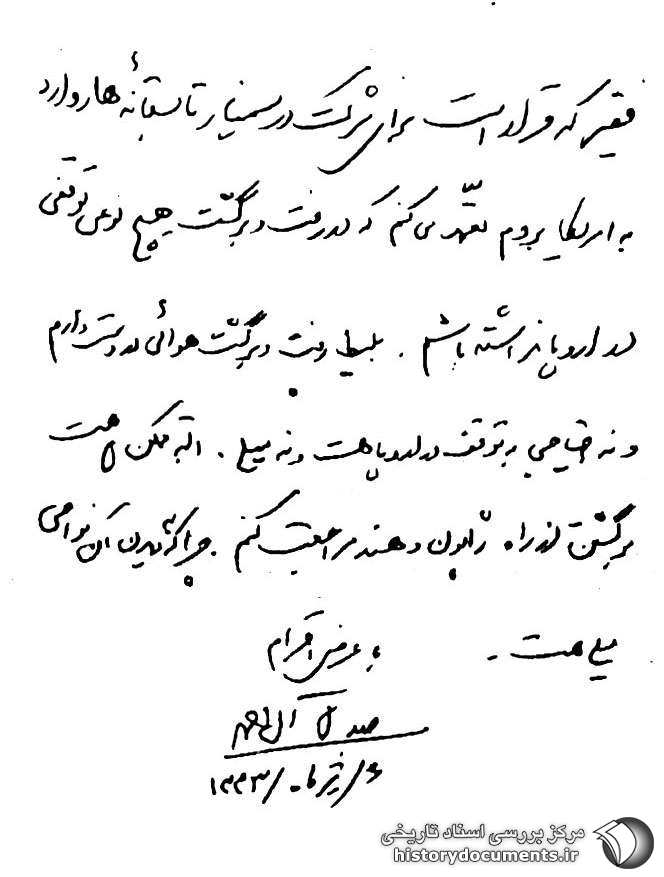 فقیر که قرار است برای شرکت در سمینار تابستانهٔ هاروارد
به امریکا بروم تعهّد می کنم که در رفت و برگشت هیچ نوعی توقفی
در اروپا نداشته باشم . بلیط رفت و برگشت هوائی در دست دارم
و نه احتیاجی به توقف در اروپا هست و نه میلی . البته ممکن هست
برگشتن از راه ژاپون و هند مراجعت کنم . چرا که بدیدن آن نواحی
میلی هست .
با عرض احترام
جلال آل احمد
۶/تیر ماه/۱۳۴۳
مرکز بررسی اسناد تاریخی
historydocuments.ir